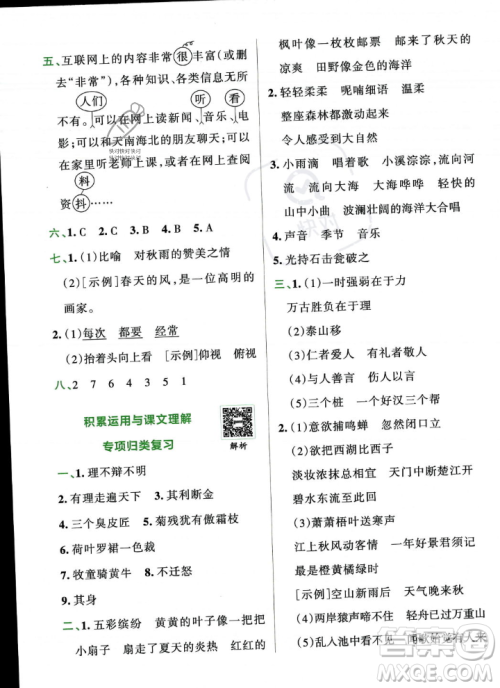 五、互联网上的内容非常很丰富(或删
去“非常”),各种知识、各类图片无
人们 听 看
不有。可以在网上读新闻、音乐、电
影;可以和天南海北的朋友聊天;可以
在家里听老师上课;也可以在网上查阅
料
资抖……
六、1. C 2. C 3. B 4. B
七、1. (1)比喻 对秋雨的赞美之情
(2)[示例]春天的风,是一位高明的
画家。
2. (1)每次 都要 经常
(2)抬着头向上看 [示例]仰视 俯视
八、2 7 6 4 3 5 1
积累运用与课文理解
专项归类复习
解析
一、1. 理不辩不明
2. 有理走遍天下 3. 其利断金
4. 三个臭皮匠 5. 菊残犹有傲霜枝
6. 荷叶罗裙一色裁
7. 牧童骑黄牛 8. 不迁怒
9. 其身
二、1. 五彩缤纷 黄黄的叶子像一把把
小扇子 扇走了夏天的炎热 红红的
枫叶像一枚枚邮票 邮来了秋天的
凉爽 田野像金色的海洋
2. 轻轻柔柔 呢喃细语 温柔
整座森林都激动起来
令人感到自然力量
3. 小雨滴 唱着歌 小溪淙淙,流向河
流 流向大海 大海哗哗 轻快的
山中小曲 波澜壮阔的海洋大合唱
4. 声音 季节 音乐
5. 光持石击瓮破之
三、1. (1)一时强弱在于力
万古胜负在于理
(2)泰山移
(3)仁者爱人 有礼者敬人
(4)与人善言 暖于布帛
(5)三个桩 一个好汉三个帮
2. (1)意欲捕鸣蝉 忽然闭口立
(2)水光潋滟晴方好 山色空蒙雨亦奇
淡妆浓抹总相宜 天门中断楚江开
碧水东流至此回
(3)萧萧梧叶送寒声
江上秋风动客情 一年好景君须记
最是橙黄橘绿时
[示例]空山新雨后 天气晚来秋
(4)两岸猿声啼不住 轻舟已过万重山
(5)乱入池中看不见 闻歌始觉有人来